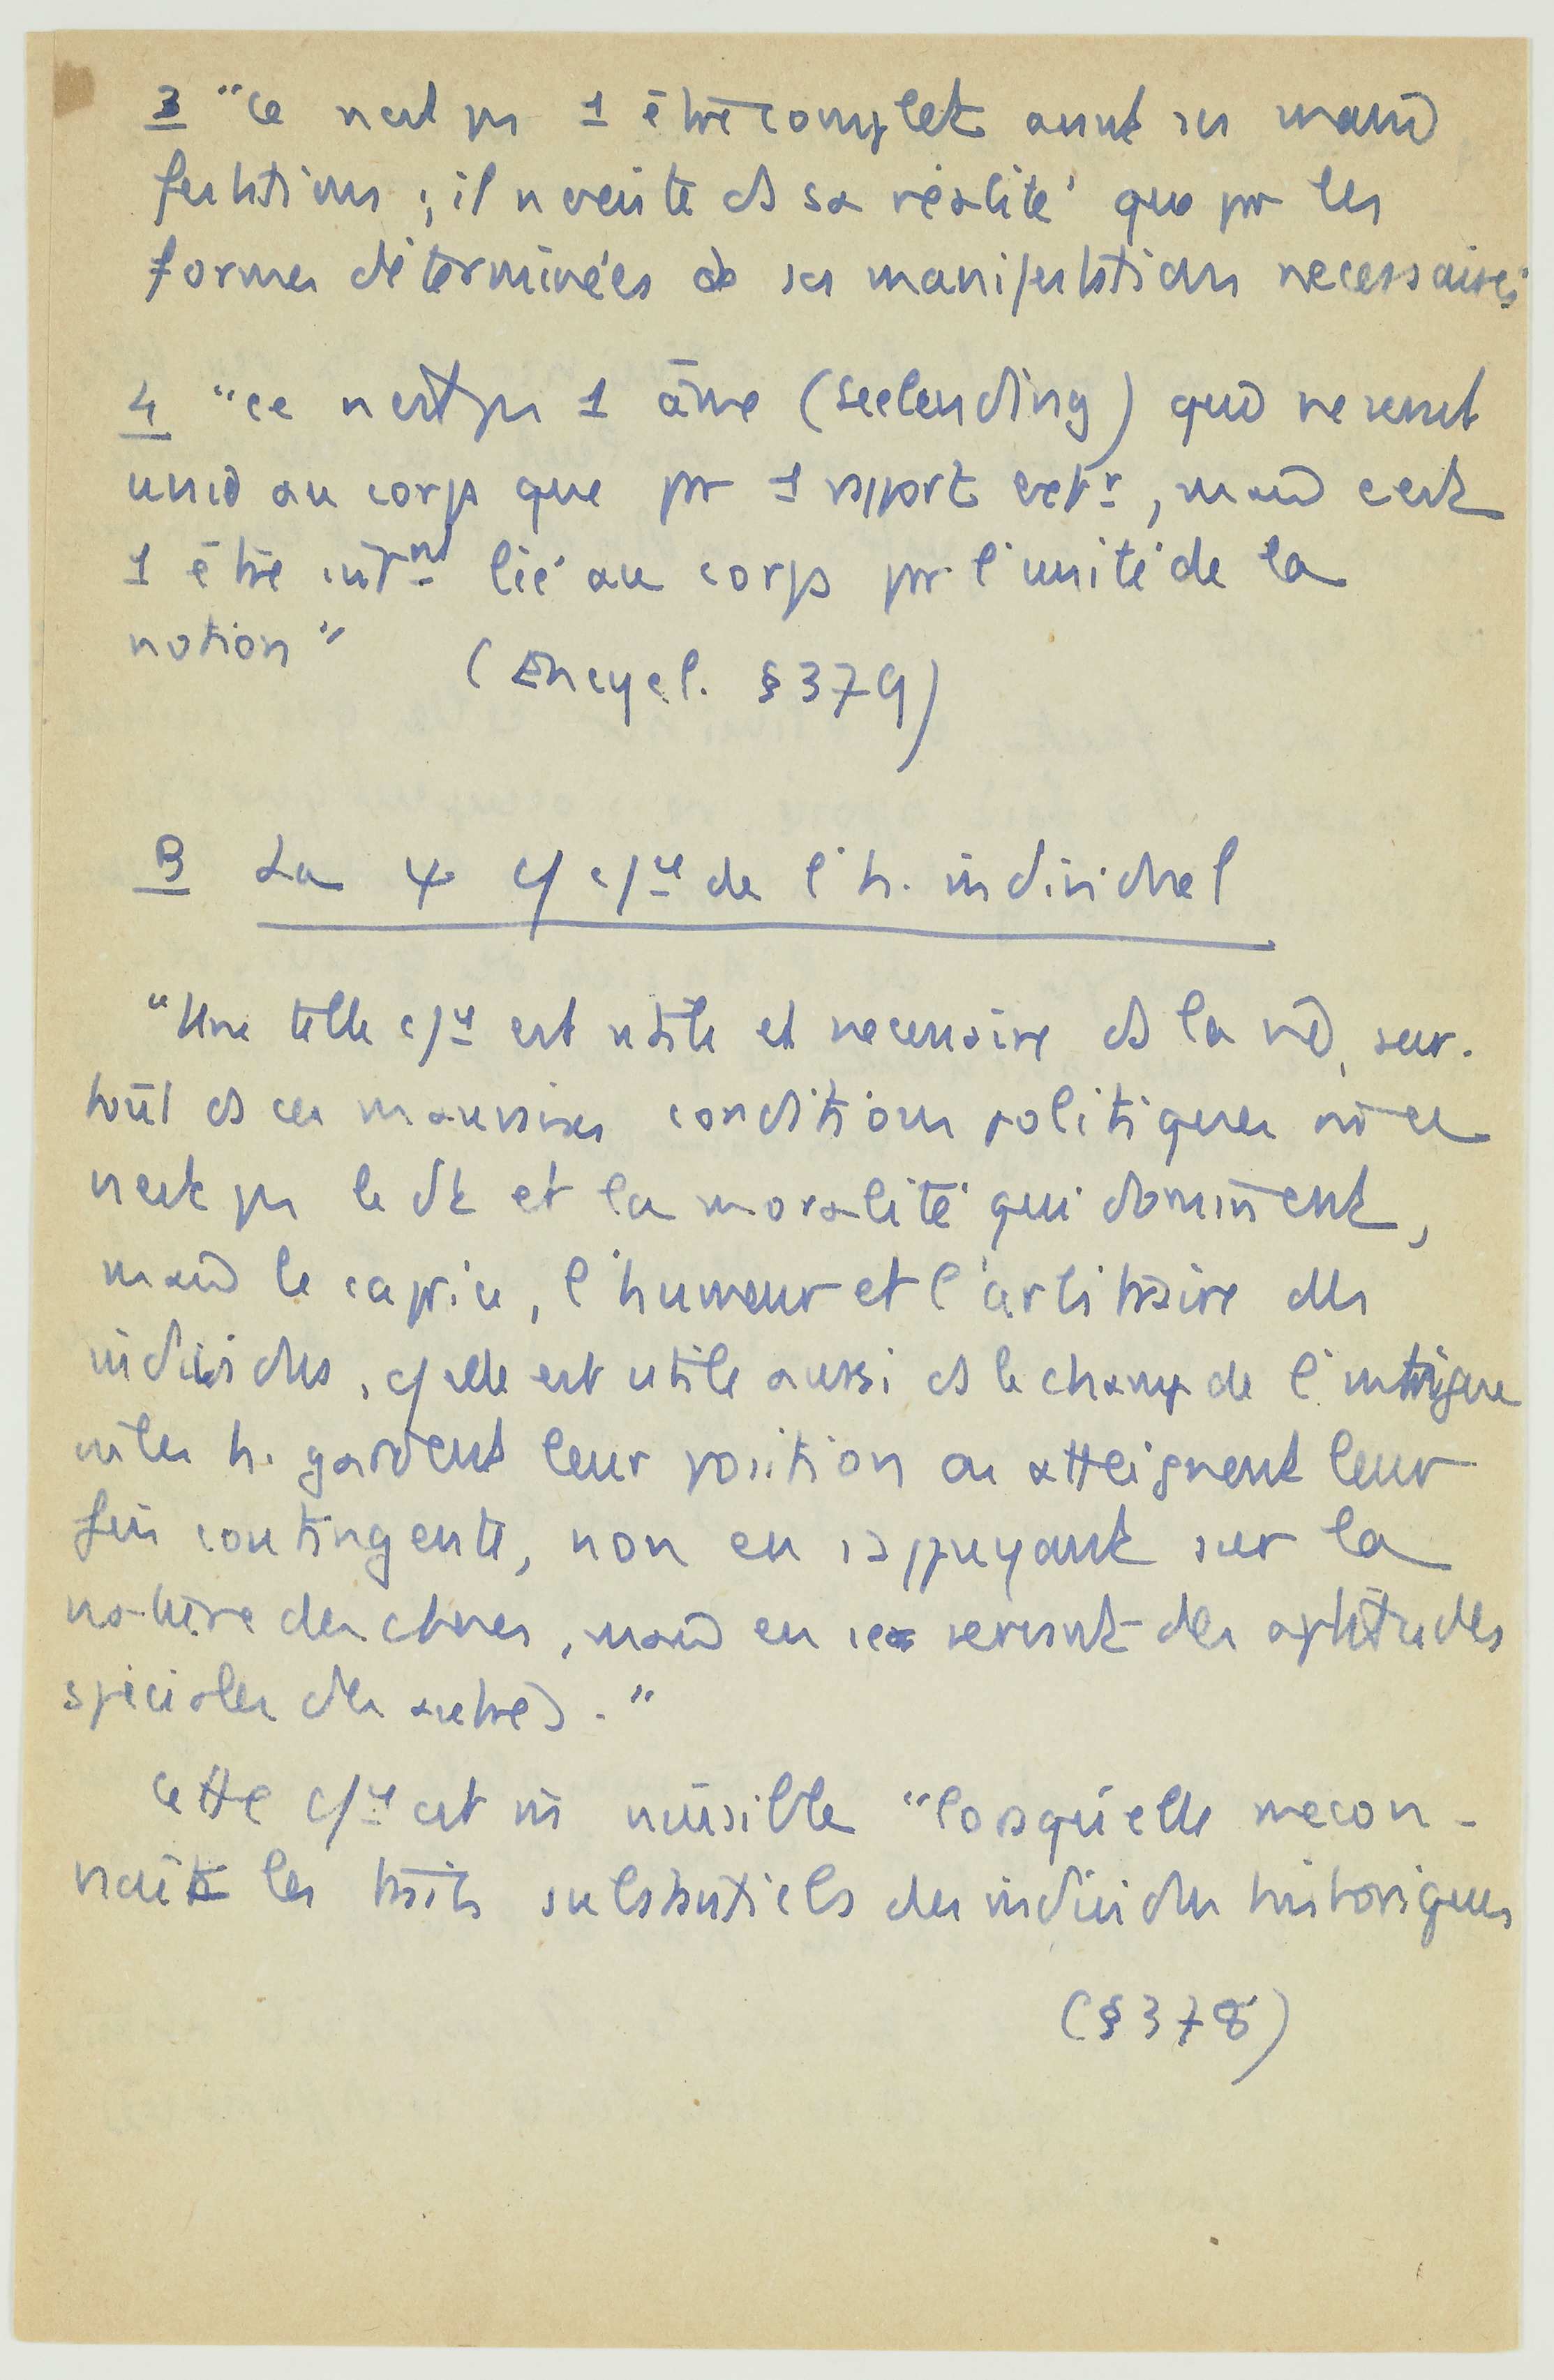 3 "ce n'est ps 1 être complet avant ses mani
festations ; il n'existe ds sa réalité que pr les
formes déterminées de ses manifestations necessaires
4 "ce n'est ps 1 âme (Seelending) qui ne serait
unie au corps que pr 1 rapport extr, mais c'est
1 être intnt lié au corps pr l'unité de la
notion"
(Encycl. § 379)
B La ψ c/ c/ce de l'h. individuel
"Une telle c/ce est utile et necessaire ds la vie, sur-
tout ds ces mauvaises conditions politiques où ce
n'est ps le dt et la moralité qui dominent,
mais le caprice, l'humeur et l'arbitraire des
individus, c/ elle est utile aussi ds le champ de l'intrigue
où les h. gardent leur position ou atteignent leur
fin contingente, non en s'appuyant sur la
nature des choses, mais en se servant des aptitudes
spéciales des autres."
Cette c/ce est nuisible "lorsqu'elle mecon-
naît les traits substantiels des individus historiques
(§ 378)